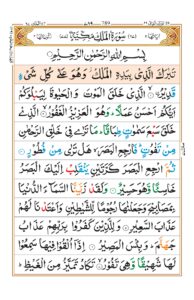 سُوْرَةُ الْمُلْكِ مَكِّيَّةٌ
بِسْمِ اللهِ الرَّحْمٰنِ الرَّحِيْمِ
تَبٰرَكَ الَّذِىْ بِيَدِهِ الْمُلْكُ وَهُوَ عَلٰى كُلِّ شَىْءٍ
قَدِيْرُ ۙ الَّذِىْ خَلَقَ الْمَوْتَ وَالْحَيٰوةَ لِيَبْلُوَكُمْ
اَيُّكُمْ اَحْسَنُ عَمَلًا ؕ وَهُوَ الْعَزِيْزُ الْغَفُوْرُ ۙ الَّذِىْ
خَلَقَ سَبْعَ سَمٰوٰتٍ طِبَاقًا ؕ مَا تَرٰى فِىْ خَلْقِ الرَّحْمٰنِ
مِنْ تَفٰوُتٍ ؕ فَارْجِعِ الْبَصَرَ ۙ هَلْ تَرٰى مِنْ فُطُوْرٍ
ثُمَّ ارْجِعِ الْبَصَرَ كَرَّتَيْنِ يَنْقَلِبْ اِلَيْكَ الْبَصَرُ
خَاسِئًا وَّهُوَ حَسِيْرٌ وَلَقَدْ زَيَّنَّا السَّمَآءَ الدُّنْيَا
بِمَصَابِيْحَ وَجَعَلْنٰهَا رُجُوْمًا لِّلشَّيٰطِيْنِ وَاَعْتَدْنَا لَهُمْ
عَذَابَ السَّعِيْرِ وَلِلَّذِيْنَ كَفَرُوْا بِرَبِّهِمْ عَذَابُ
جَهَنَّمَ ؕ وَبِئْسَ الْمَصِيْرُ اِذَآ اُلْقُوْا فِيْهَا سَمِعُوْا
لَهَا شَهِيْقًا وَّهِىَ تَفُوْرُ ۙ تَكَادُ تَمَيَّزُ مِنَ الْغَيْظِ ؕ